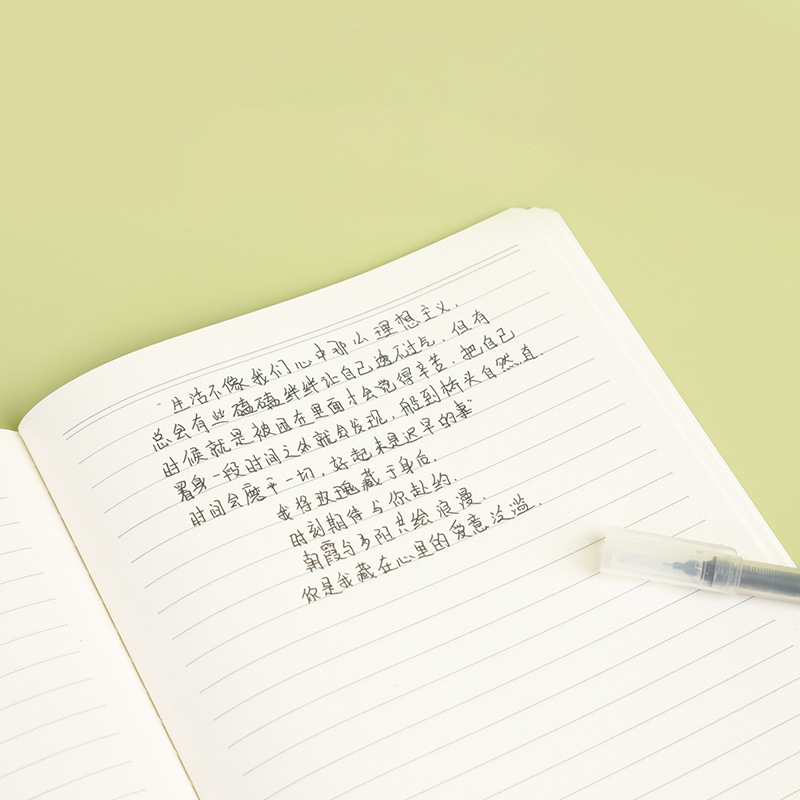 “生活不像我们心中那么理想主义,
总会有些磕磕绊绊让自己透不过气,但有
时候就是被困在里面才会觉得辛苦,把自己
置身一段时间之外就会发现,船到桥头自然直.
时间会磨平一切,好起来是迟早的事”
我将玫瑰藏于身后.
时刻期待与你赴约.
朝霞与夕阳共绘浪漫.
你是我藏在心里的爱意泛滥.